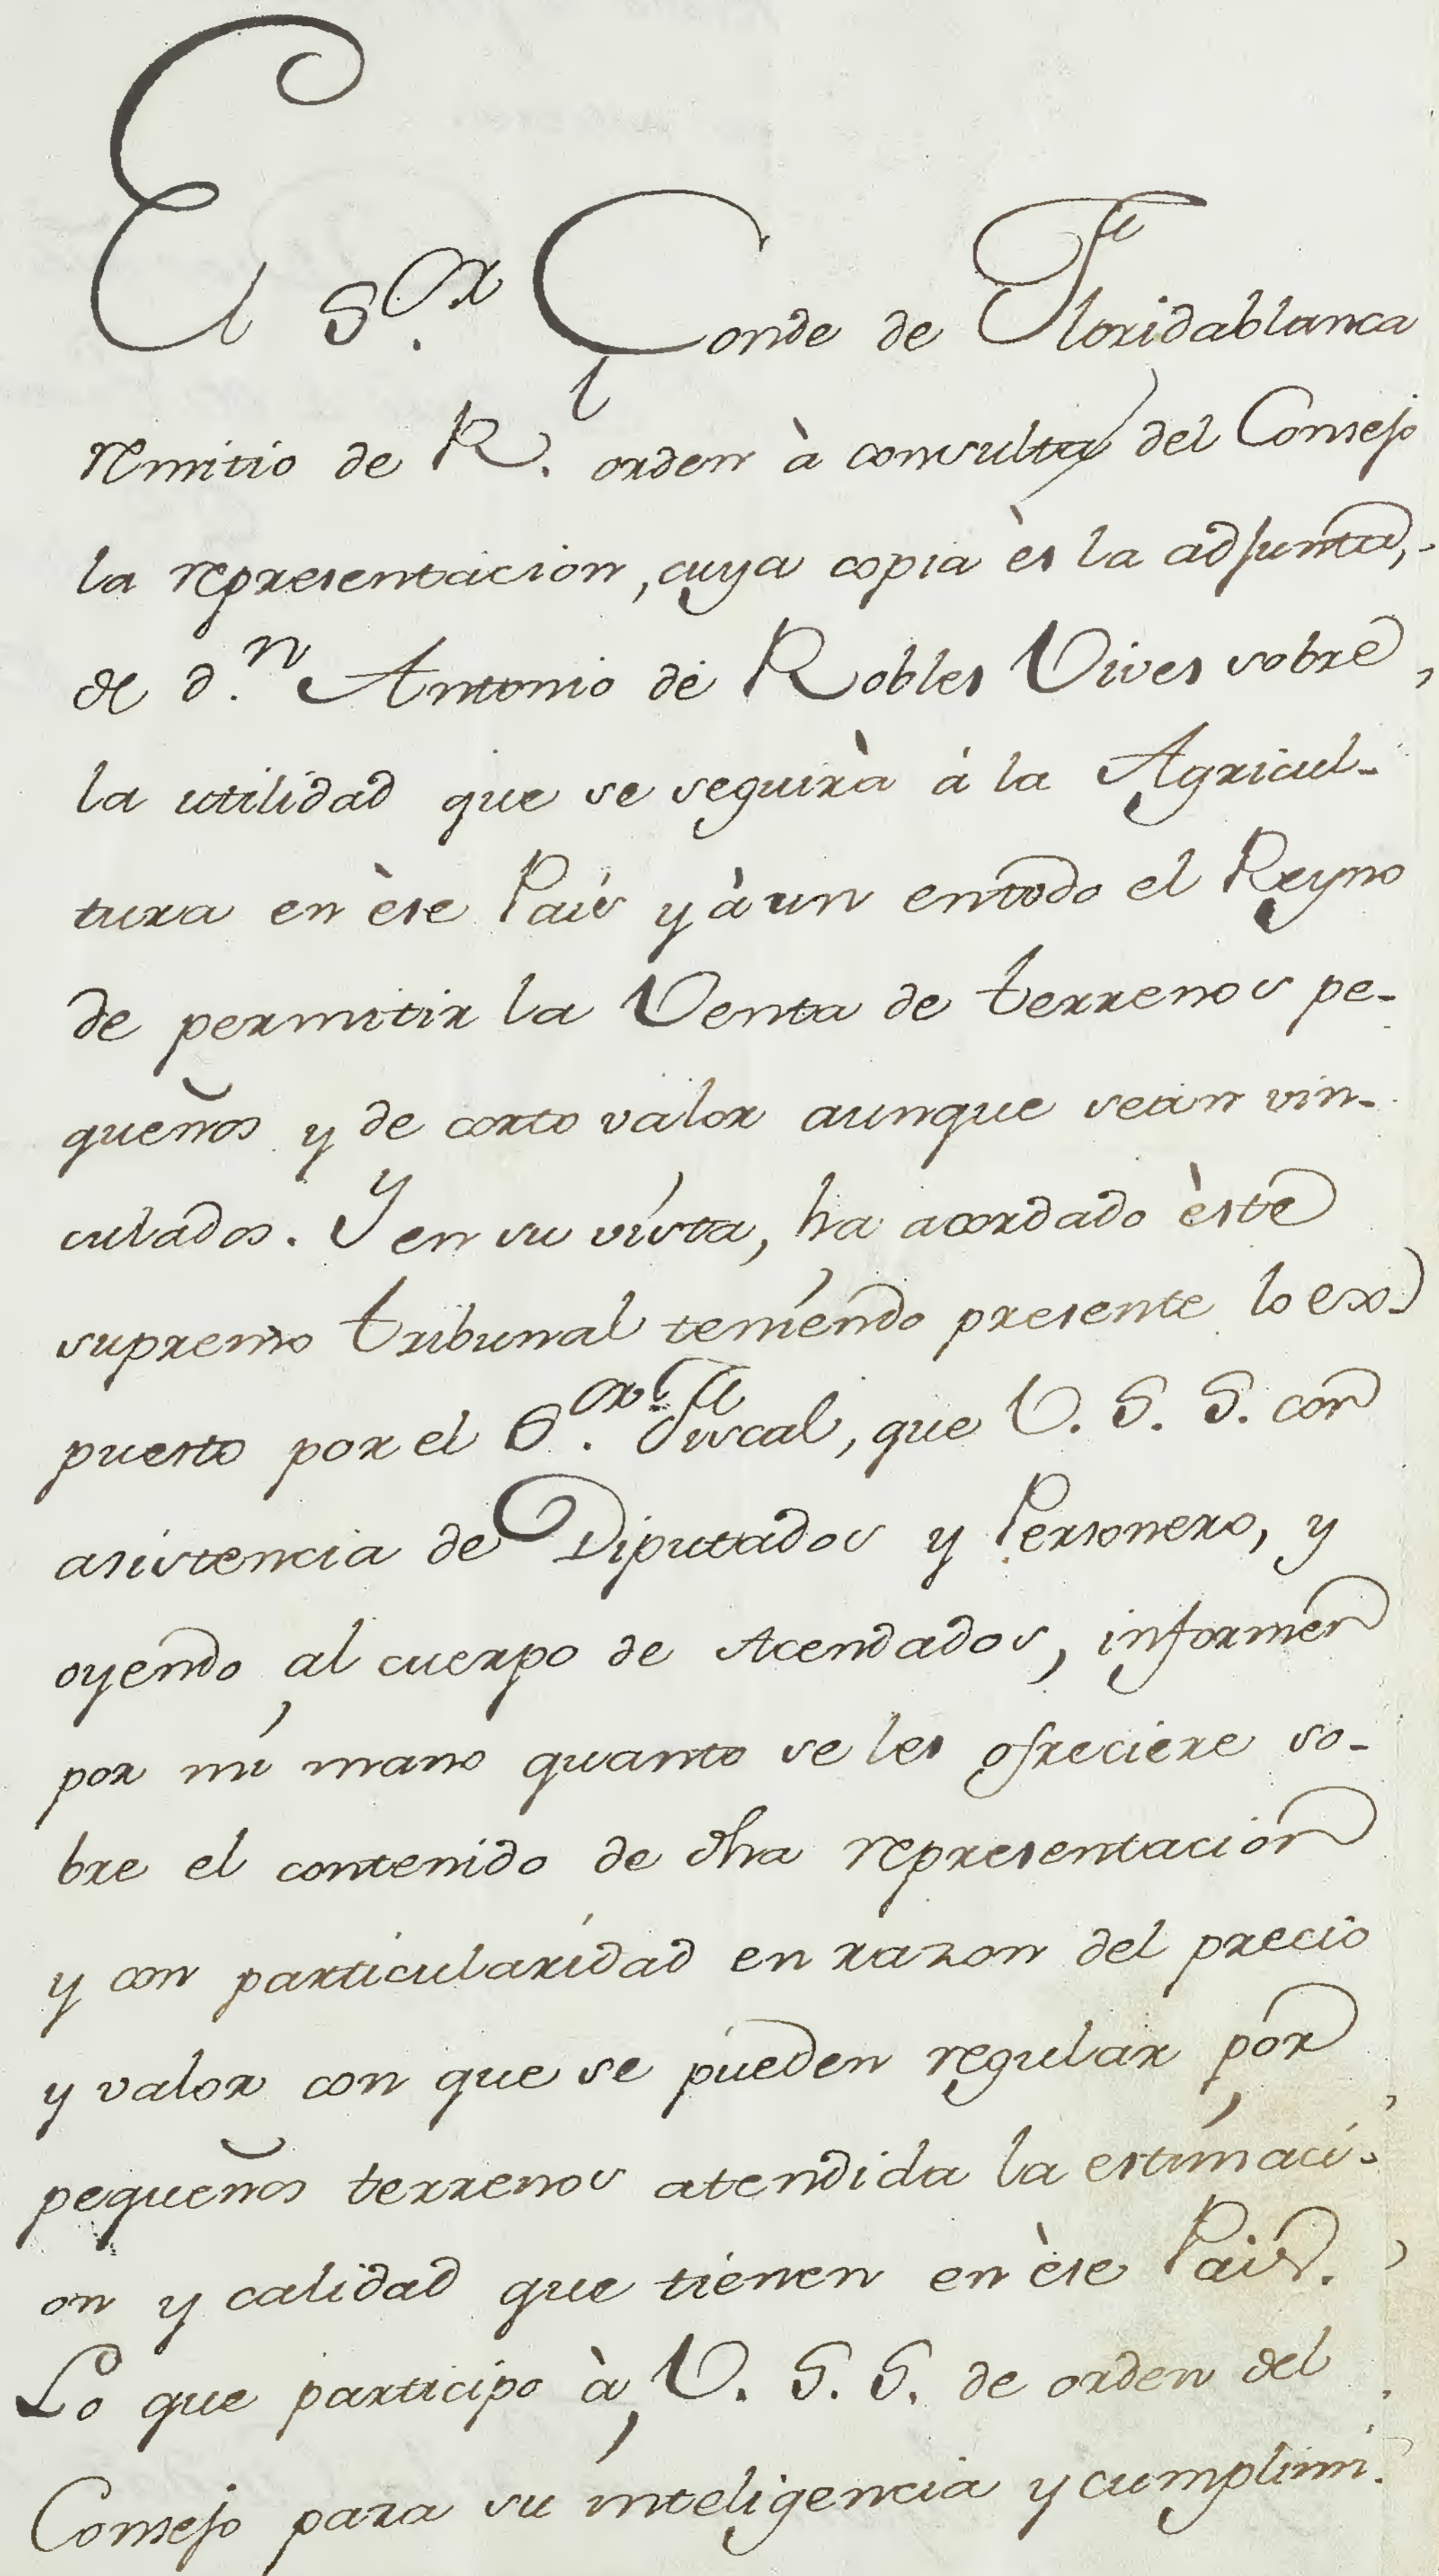 El S.or Conde de Floridablanca
remitio de R.l orden à consulta del Consejo
la representacion, cuya copia ès la adjunta,
de d.n Antonio de Robles Vives sobre
la utilidad que se seguirà á la Agricul-
tura en èse País y àun entodo el Reyno
de permitir la Venta de terrenos pe-
queños y de corto valor aunque sean vin-
culados. Y en su vista, ha acordado èste
supremo tribunal teniendo presente lo ex-
puesto por el S.or Fiscal, que V. S. S. con
asistencia de Diputados y Personero, y
oyendo al cuerpo de Acendados, informen
por mi mano quanto se les ofreciere so-
bre el contenido de dha representacion
y con particularidad en razon del precio
y valor con que se pueden regular por
pequeños terrenos atendida la estimaci-
on y calidad que tienen en èse País.
Lo que participo à V. S. S. de orden del
Consejo para su inteligencia y cumplimi-